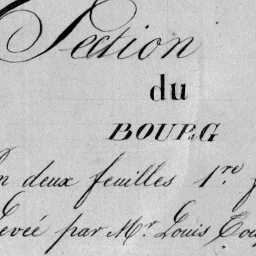 Section
du
BOURG
en deux feuilles 1.re f
Levée par Mr. Louis Cou